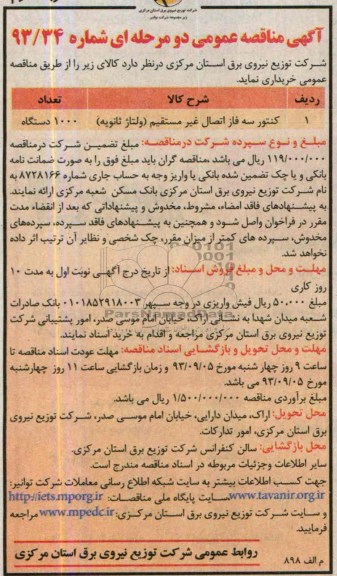 شرکت توزیع نیروی برق استان مرکزی
آگهی مناقصه عمومی دو مرحله ای شماره ۹۳/۳۴
شرکت توزیع نیروی برق استان مرکزی درنظر دارد کالای زیر را از طریق مناقصه
عمومی خریداری نماید.
ردیف شرح کالا تعداد
۱ کنتور سه فاز اتصال غیر مستقیم (ولتاژ ثانویه) ۱۰۰۰ دستگاه
مبلغ و نوع سپرده شرکت درمناقصه: مبلغ تضمین شرکت درمناقصه
۱۱۹/۰۰۰/۰۰۰ ریال می باشد .مناقصه گران باید مبلغ فوق را به صورت ضمانت نامه
بانکی و یا چک تضمین شده بانکی یا واریز وجه به حساب جاری شماره ۸۷۲۸۱۶۶ به
نام شرکت توزیع نیروی برق استان مرکزی بانک مسکن شعبه مرکزی ارائه نمایند.
به پیشنهادهای فاقد امضاء، مشروط، مخدوش و پیشنهاداتی که بعد از انقضاء مدت
مقرر در فراخوان واصل شود و همچنین به پیشنهادهای فاقد سپرده، سپرده‌های
مخدوش، سپرده های کمتر از میزان مقرر، چک شخصی و نظایر آن ترتیب اثر داده
نخواهد شد.
مهلت و محل و مبلغ فروش اسناد: از تاریخ درج آگهی نوبت اول به مدت ۱۰
روز کاری
مبلغ ۵۰،۰۰۰ ریال فیش واریزی در وجه سپهر ۰۱۰۱۸۵۲۹۱۸۰۰۳ بانک صادرات
شعبه میدان شهدا به نشانی اراک، خیابان امام موسی صدر، امور پشتیبانی شرکت
توزیع نیروی برق استان مرکزی مراجعه و اقدام به خرید اسناد نمایند.
مهلت و محل تحویل و بازگشایی اسناد مناقصه: مهلت عودت اسناد مناقصه تا
ساعت ۹ روز چهار شنبه مورخ ۹۳/۰۹/۰۵ و زمان بازگشایی ساعت ۱۱ روز چهارشنبه
مورخ ۹۳/۰۹/۰۵ می باشد.
مبلغ برآوردی مناقصه ۱/۵۰۰/۰۰۰/۰۰۰ ریال می باشد.
محل تحویل: اراک، میدان دارایی، خیابان امام موسی صدر، شرکت توزیع نیروی
برق استان مرکزی، امور تدارکات.
محل بازگشایی: سالن کنفرانس شرکت توزیع نیروی برق استان مرکزی.
سایر اطلاعات وجزئیات مربوطه در اسناد مناقصه مندرج است.
جهت کسب اطلاعات بیشتر به سایت شبکه اطلاع رسانی معاملات شرکت توانیر:
www.tavanir.org.ir سایت پایگاه ملی مناقصات: http://iets.mporg.ir
و سایت شرکت توزیع نیروی برق استان مرکزی: www.mpedc.ir مراجعه
فرمایید.
روابط عمومی شرکت توزیع نیروی برق استان مرکزی
م الف ۸۹۸